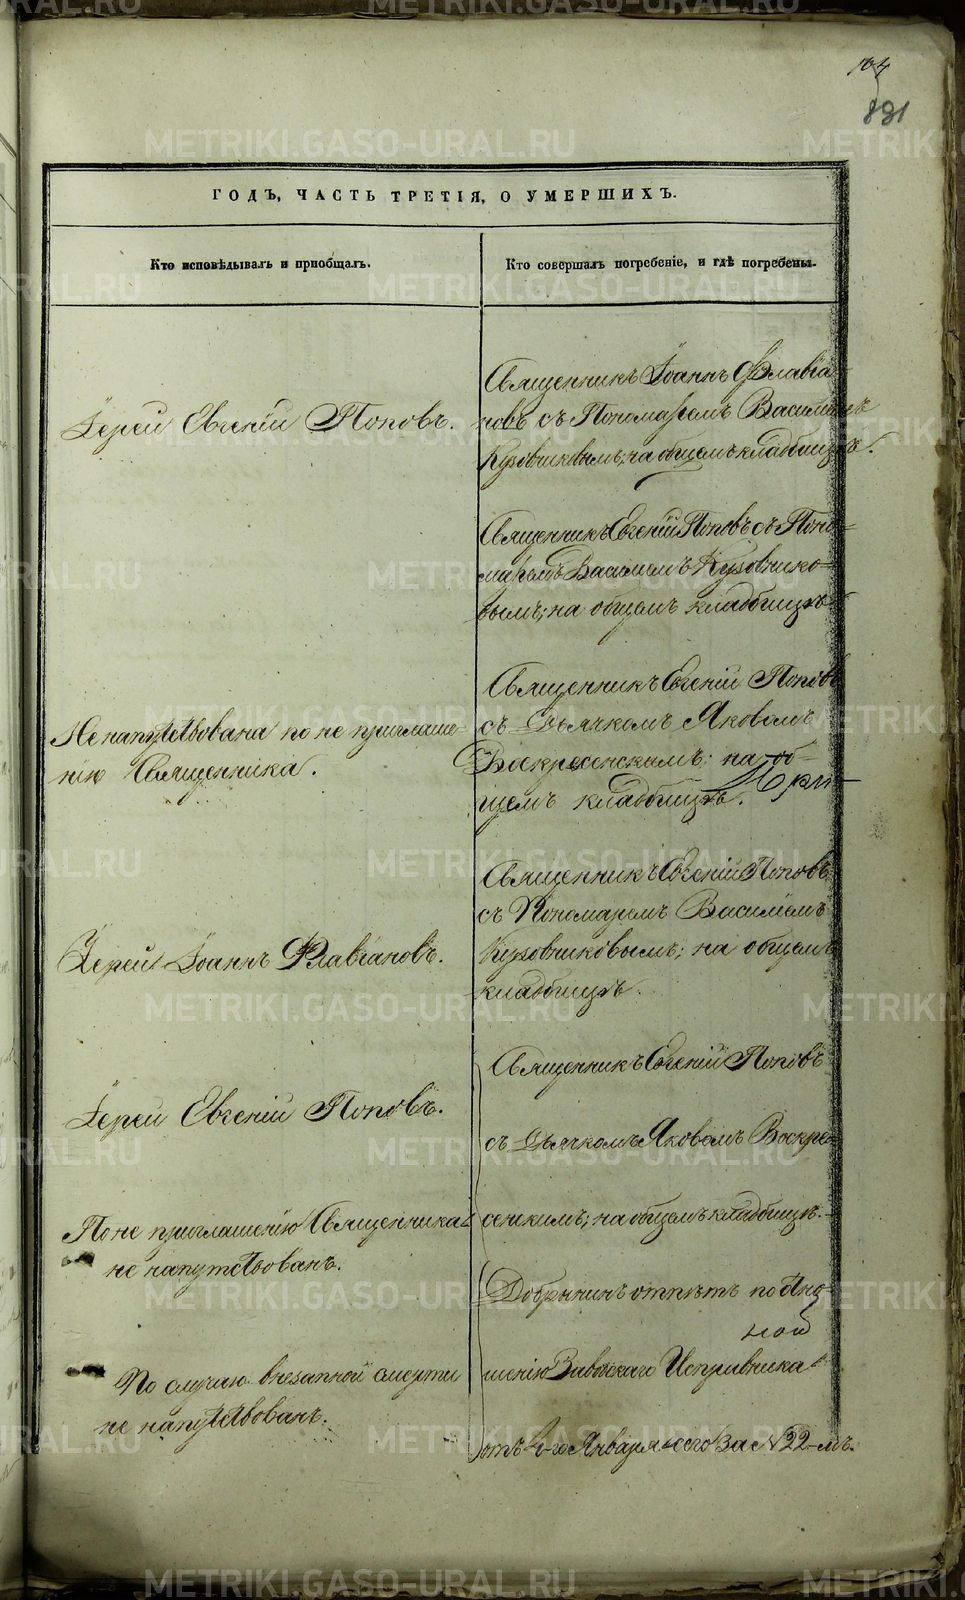 104
891
ГОДЪ, ЧАСТЬ ТРЕТІЯ, О УМЕРШИХЪ.
Кто исповѣдывалъ и пріобщалъ.
Кто совершалъ погребеніе, и гдѣ погребены.
Іерей Евгеній Поповъ.
Священникъ Іоаннъ Флавіа-
новъ съ Пономаремъ Василіемъ
Кузовниковымъ; на общемъ кладбищѣ.
Священникъ Евгеній Поповъ съ Поно-
маремъ Василіемъ Кузовнико-
вымъ; на общемъ кладбищѣ
Не напутствована по не приглаше-
нію Священника.
Священникъ Евгеній Поповъ
съ Дьячкомъ Яковомъ
Воскресенскимъ: на об-
щемъ кладбищѣ.
Іерей Іоаннъ Флавіановъ.
Священникъ Евгеній Поповъ
съ Пономаремъ Василіемъ
Кузовниковымъ; на общемъ
кладбищѣ.
Іерей Евгеній Поповъ.
Священникъ Евгеній Поповъ
съ Дьячкомъ Яковомъ Воскре-
сенскимъ; на общемъ кладбищѣ.
По не приглашенію Священника
не напутствованъ.
Добрынинъ отпѣтъ по отно-
шенію Заводскаго Исправника
По случаю внезапной смерти
не напутствованъ.
отъ 4-го Января сего за №22-мъ.
METRIKI.GASO-URAL.RU